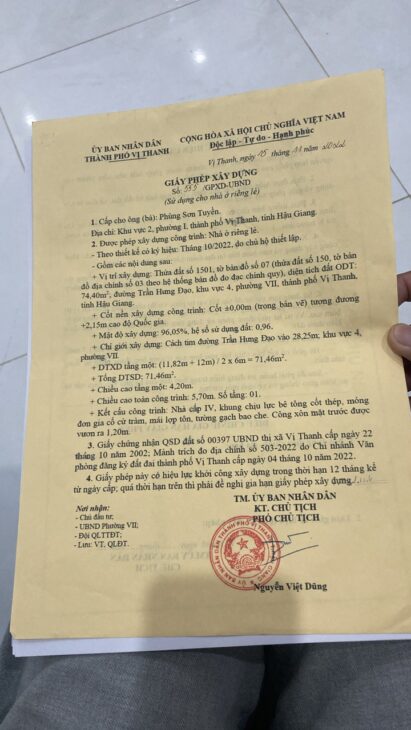 ỦY BAN NHÂN DÂN
THÀNH PHỐ VỊ THANH
CỘNG HÒA XÃ HỘI CHỦ NGHĨA VIỆT NAM
Độc lập - Tự do - Hạnh phúc
Vị Thanh, ngày 15 tháng 11 năm 2022
GIẤY PHÉP XÂY DỰNG
Số: /GPXD-UBND
(Sử dụng cho nhà ở riêng lẻ)
1. Cấp cho ông (bà): Phùng Sơn Tuyền.
Địa chỉ: Khu vực 2, phường I, thành phố Vị Thanh, tỉnh Hậu Giang.
2. Được phép xây dựng công trình: Nhà ở riêng lẻ.
- Theo thiết kế có ký hiệu: Tháng 10/2022, do chủ hộ thiết lập.
- Gồm các nội dung sau:
+ Vị trí xây dựng: Thửa đất số 1501, tờ bản đồ số 07 (thửa đất số 150, tờ bản
đồ địa chính số 03 theo hệ thống bản đồ đo đạc chính quy), diện tích đất ODT:
74,40m², đường Trần Hưng Đạo, khu vực 4, phường VII, thành phố Vị Thanh,
tỉnh Hậu Giang.
+ Cốt nền xây dựng công trình: Cốt ±0,00m (trong bản vẽ) tương đương
+2,15m cao độ Quốc gia.
+ Mật độ xây dựng: 96,05%, hệ số sử dụng đất: 0,96.
+ Chỉ giới xây dựng: Cách tim đường Trần Hưng Đạo vào 28,25m; khu vực 4,
phường VII.
+ DTXD tầng một: (11,82m + 12m) / 2 x 6m = 71,46m².
+ Tổng DTSD: 71,46m².
+ Chiều cao tầng một: 4,20m.
+ Chiều cao toàn công trình: 5,70m. Số tầng: 01.
+ Kết cấu công trình: Nhà cấp IV, khung chịu lực bê tông cốt thép, móng
đơn gia cố cừ tràm, mái lợp tôn, tường gạch bao che. Công xôn mặt trước được
vươn ra 1,20m.
3. Giấy chứng nhận QSD đất số 00397 UBND thị xã Vị Thanh cấp ngày 22
tháng 10 năm 2002; Mảnh trích đo địa chính số 503-2022 do Chi nhánh Văn
phòng đăng ký đất đai thành phố Vị Thanh cấp ngày 04 tháng 10 năm 2022.
4. Giấy phép này có hiệu lực khởi công xây dựng trong thời hạn 12 tháng kể
từ ngày cấp; quá thời hạn trên thì phải đề nghị gia hạn giấy phép xây dựng
Nơi nhận:
- Chủ đầu tư;
- UBND Phường VII;
- Đội QLTTĐT;
- Lưu: VT, QLĐT.
TM. ỦY BAN NHÂN DÂN
KT. CHỦ TỊCH
PHÓ CHỦ TỊCH
Nguyễn Việt Dũng